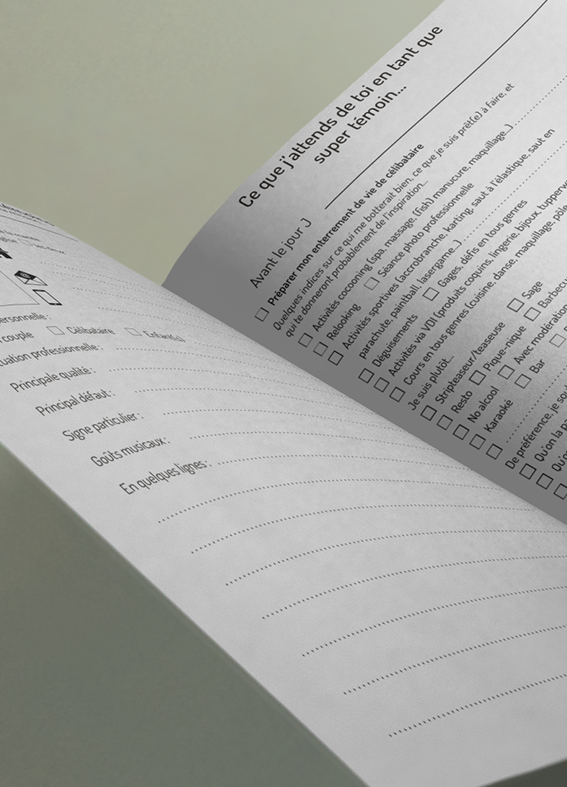 ersonnelle :
couple Célibataire Enfant(s)
uation professionnelle :
Principale qualité :
Principal défaut :
Signe particulier :
Goûts musicaux :
En quelques lignes :
Ce que j'attends de toi en tant que
super témoin...
Avant le jour J
Préparer mon enterrement de vie de célibataire
Quelques indices sur ce qui me botterait bien, ce que je suis prêt(e) à faire, et
qui te donneront probablement de l'inspiration...
Activités cocooning (spa, massage, (fish) manucure, maquillage...)
Relooking Séance photo professionnelle
Activités sportives (accrobranche, karting, saut à l'élastique, saut en
parachute, paintball, lasergame...)
Déguisements Gages, défis en tous genres
Activités via VDI (produits coquins, lingerie, bijoux, tupperw
Cours en tous genres (cuisine, danse, maquillage, pôle
Je suis plutôt...
Stripteaseur/teaseuse Sage
Resto Pique-nique Barbecu
No alcool Avec modération
Karaoké Bar
De préférence, je sou
Qu'on la p
Qu'o